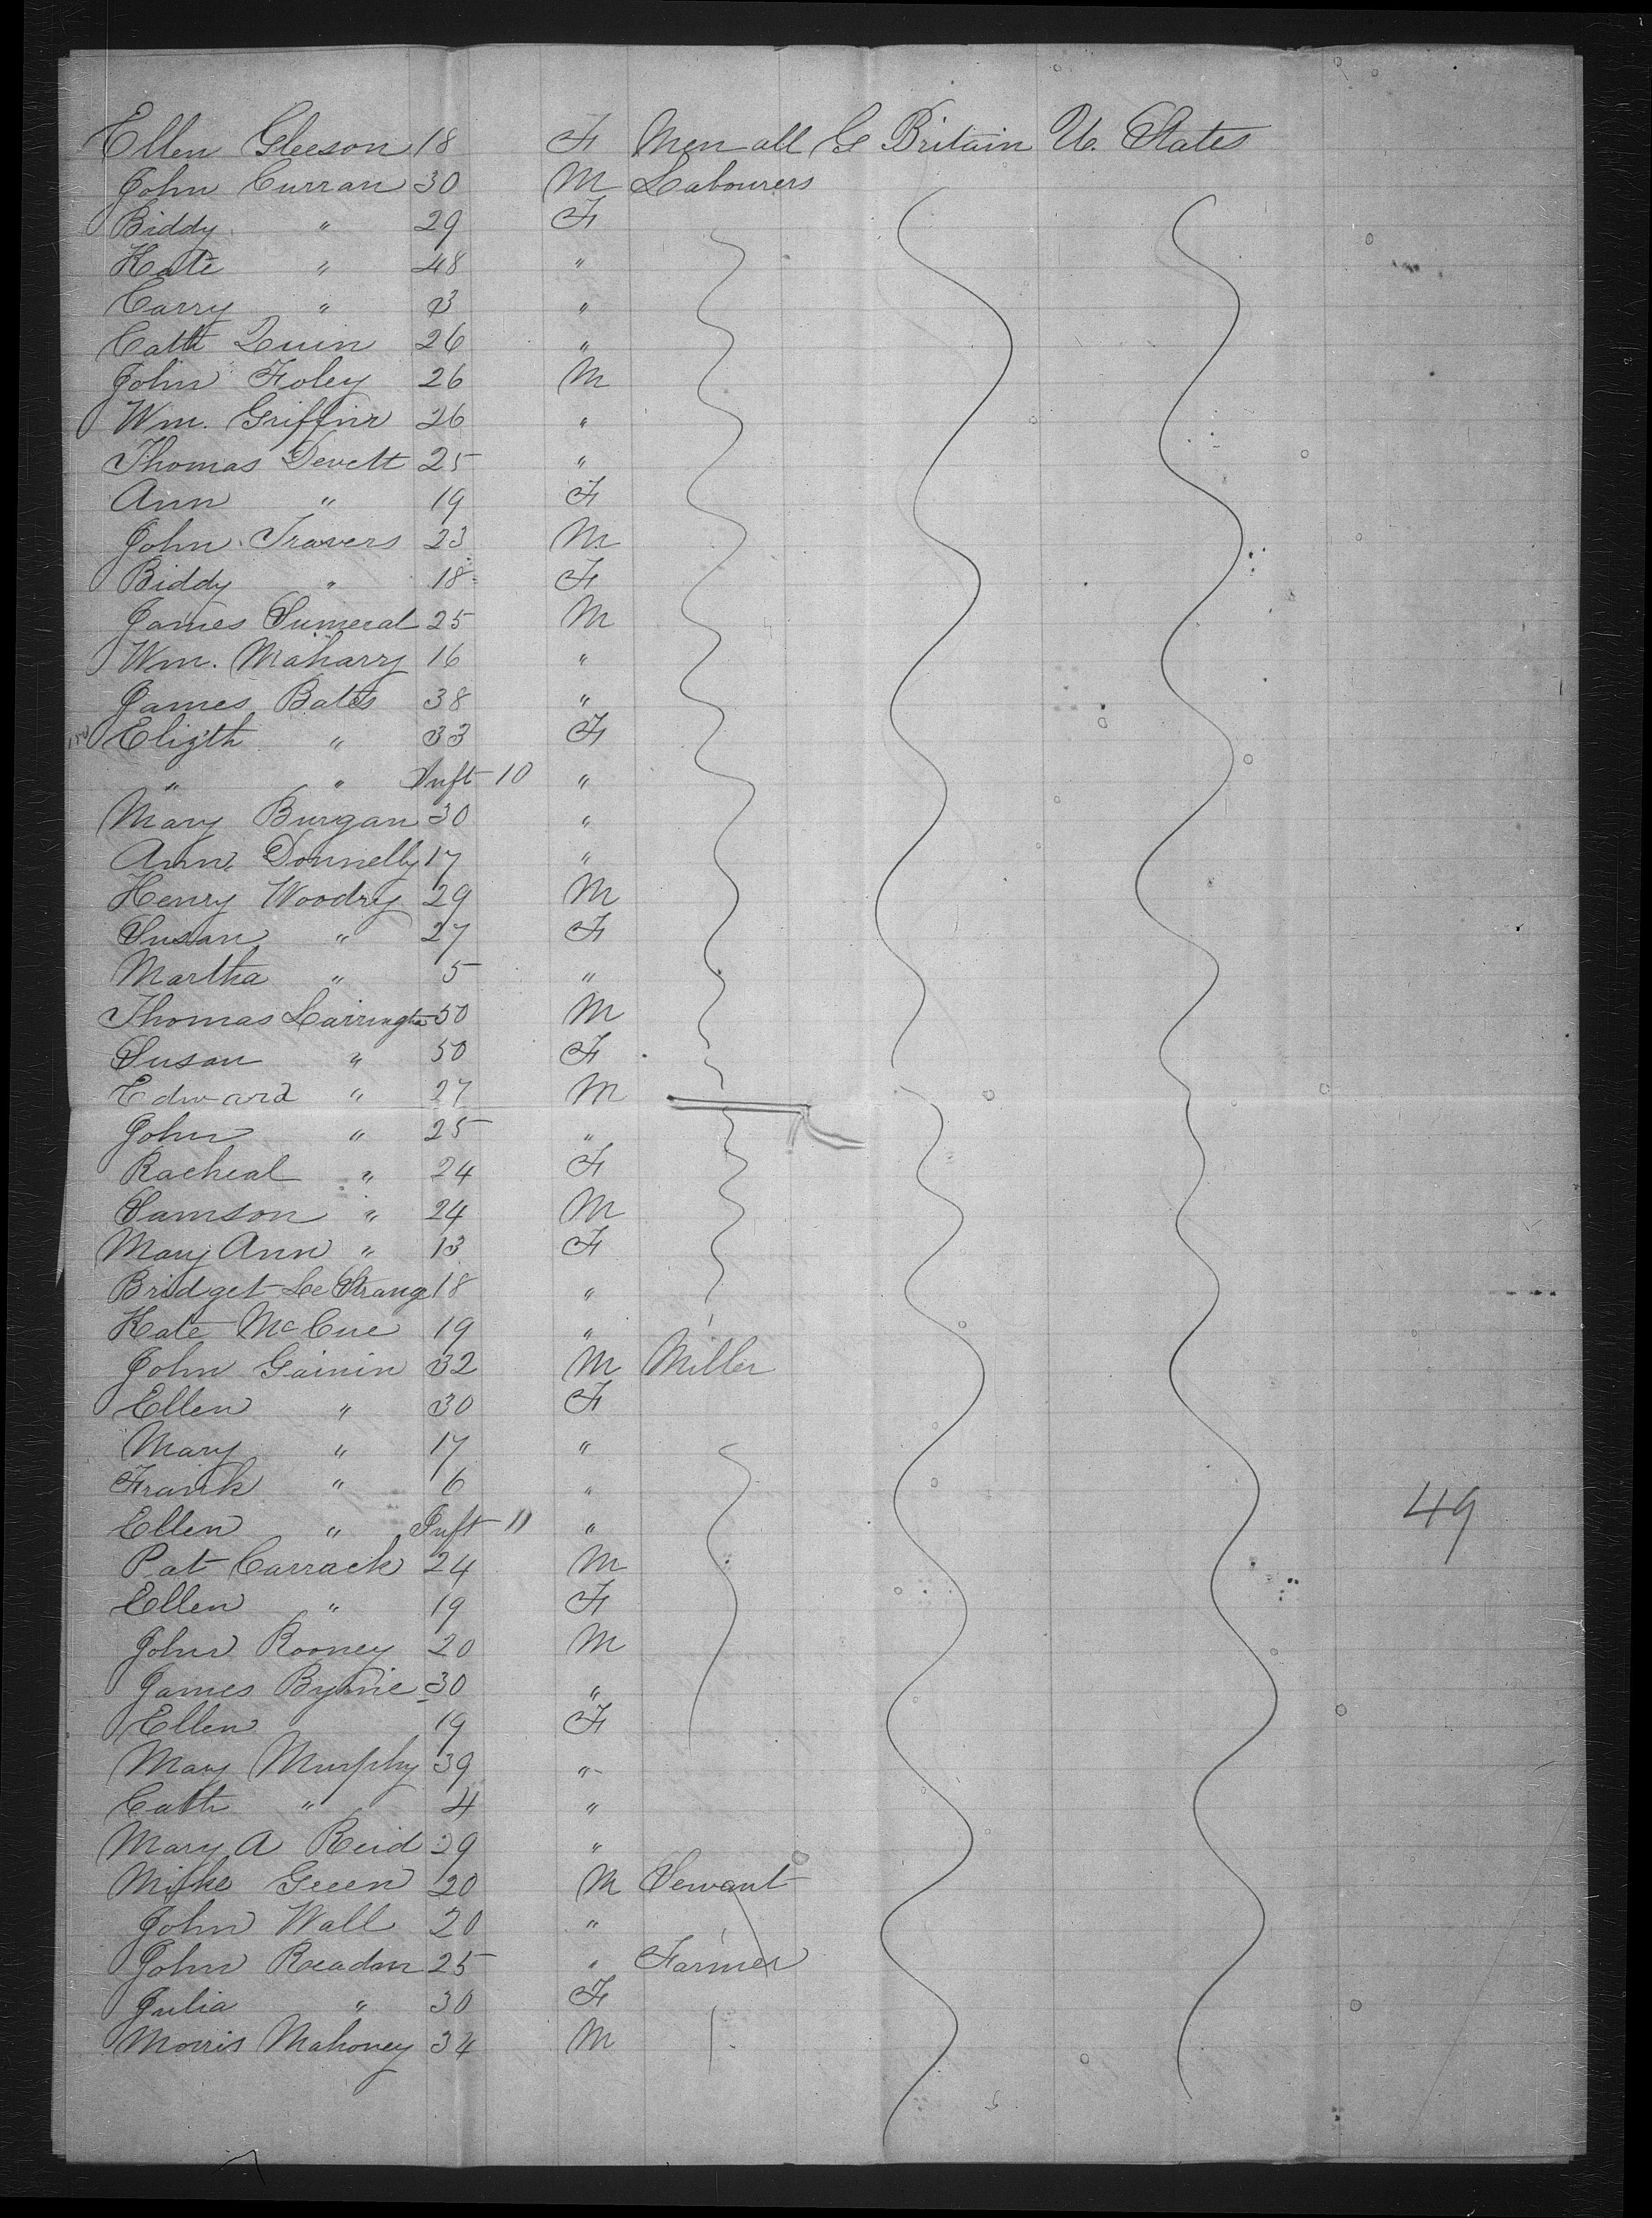 Ellen Gleeson 18 F Men all G Britain U. States
John Curran 30 M Labourers
Biddy " 29 F
Kate " 48 "
Carry " 3 "
Cath Quin 26 "
John Foley 26 M
Wm. Griffin 26 "
Thomas Devett 25 "
Ann " 19 F
John Travers 23 M
Biddy " 18 F
James Sumeral 25 M
Wm. Maharry 16 "
James Bates 38 "
Elizth " 33 F
" " Inft 10 "
Mary Burgan 30 "
Ann Donnelly 17 "
Henry Woodry 29 M
Susan " 27 F
Martha " 5 "
Thomas Larrington 50 M
Susan " 50 F
Edward " 27 M
John " 25 "
Racheal " 24 F
Samson " 24 M
Mary Ann " 13 F
Bridget Le Strange 18 "
Kate McCue 19 "
John Gainin 32 M Miller
Ellen " 30 F
Mary " 17 "
Frank " 6 "
Ellen " Inft 11 "
Pat Carrack 24 M
Ellen " 19 F
John Rooney 20 M
James Byrne 30 "
Ellen 19 F
Mary Murphy 39 "
Cath " 4 "
Mary A Reid 29 "
Mike Green 20 M Servant
John Wall 20 "
John Readon 25 " Farmer
Julia " 30 F
Morris Mahoney 34 M
49